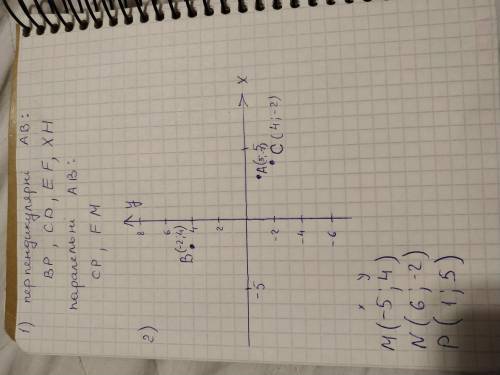 1) перпендикулярні AB:
BP, CD, EF, XH
паралельні AB:
CP, FM
2)
y
8
6
B(-2;4)
4
2
-5
5
x
C (4;-2)
-2
-4
-6
x y
M(-5; 4)
N(6; -2)
P(1; 5)